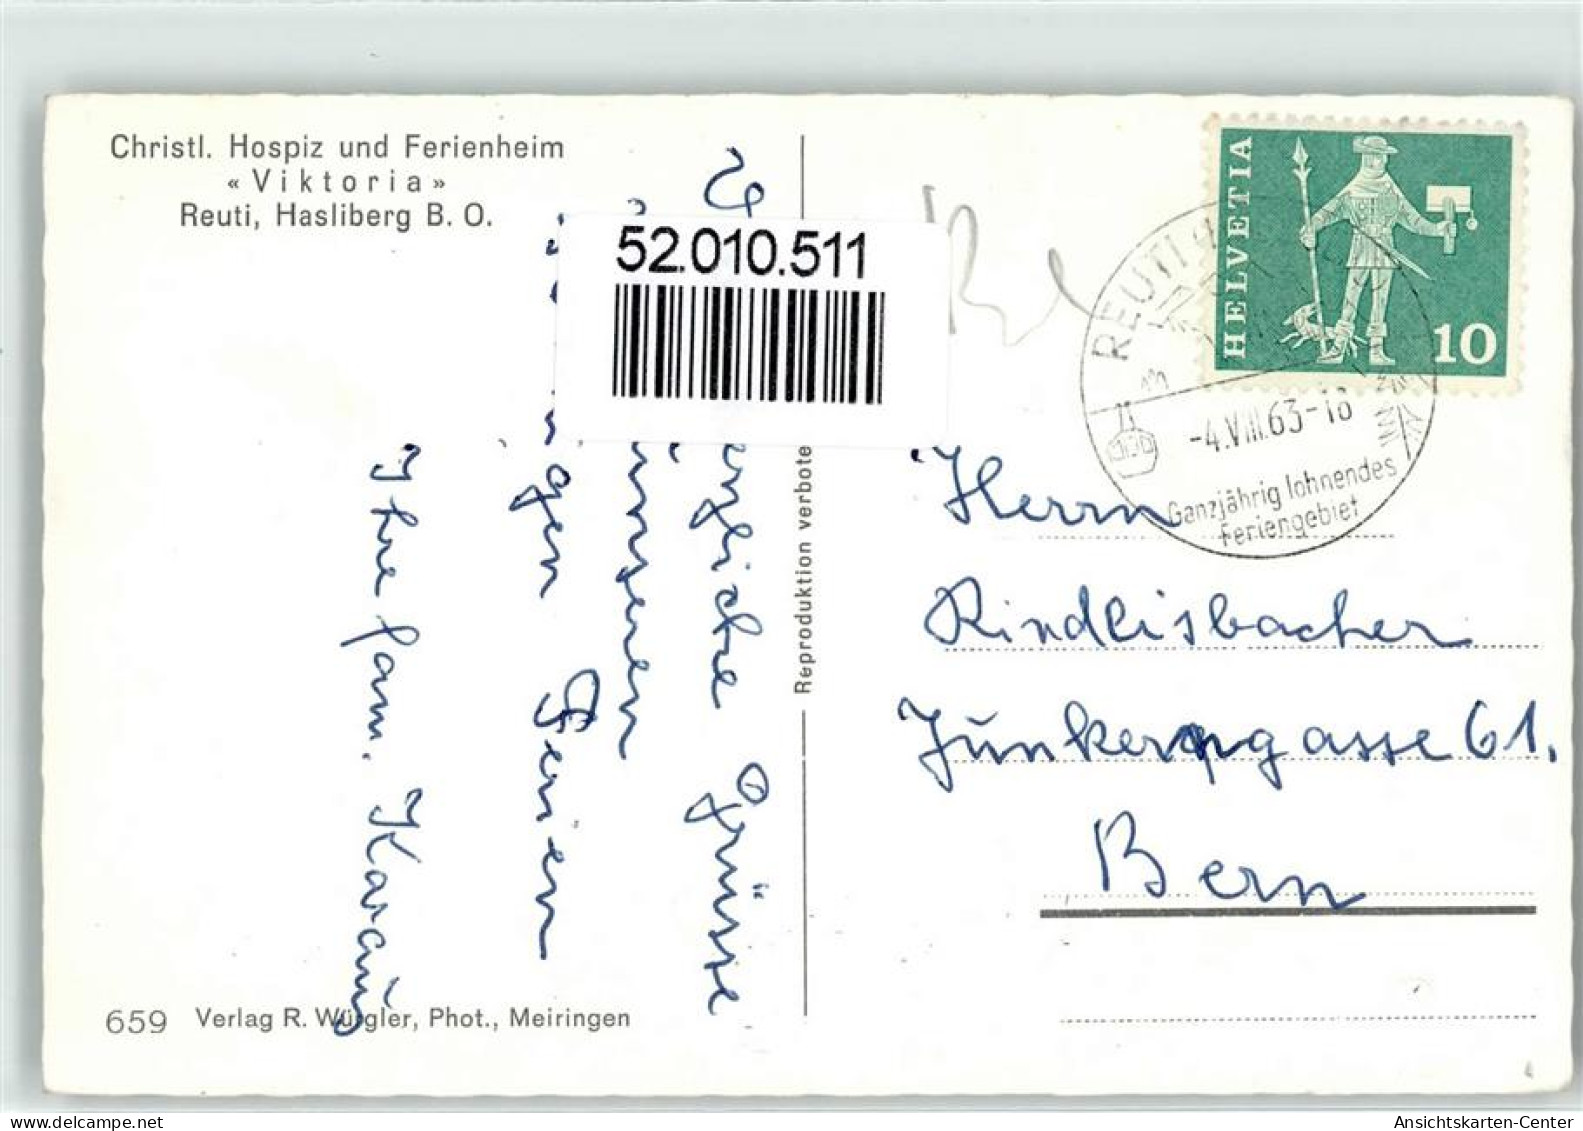 Christl. Hospiz und Ferienheim
«Viktoria»
Reuti, Hasliberg B. O.
52.010.511
HELVETIA
10
REUTI
-4.VIII.63-18
Ganzjährig lohnendes
Feriengebiet
Herrn
Rindlisbacher
Junkerngasse 61.
Bern
Grüsse
unseren
Ferien
Ihre Fam.
Reproduktion verbote
659 Verlag R. Würgler, Phot., Meiringen
www.delcampe.net
Ansichtskarten-Center